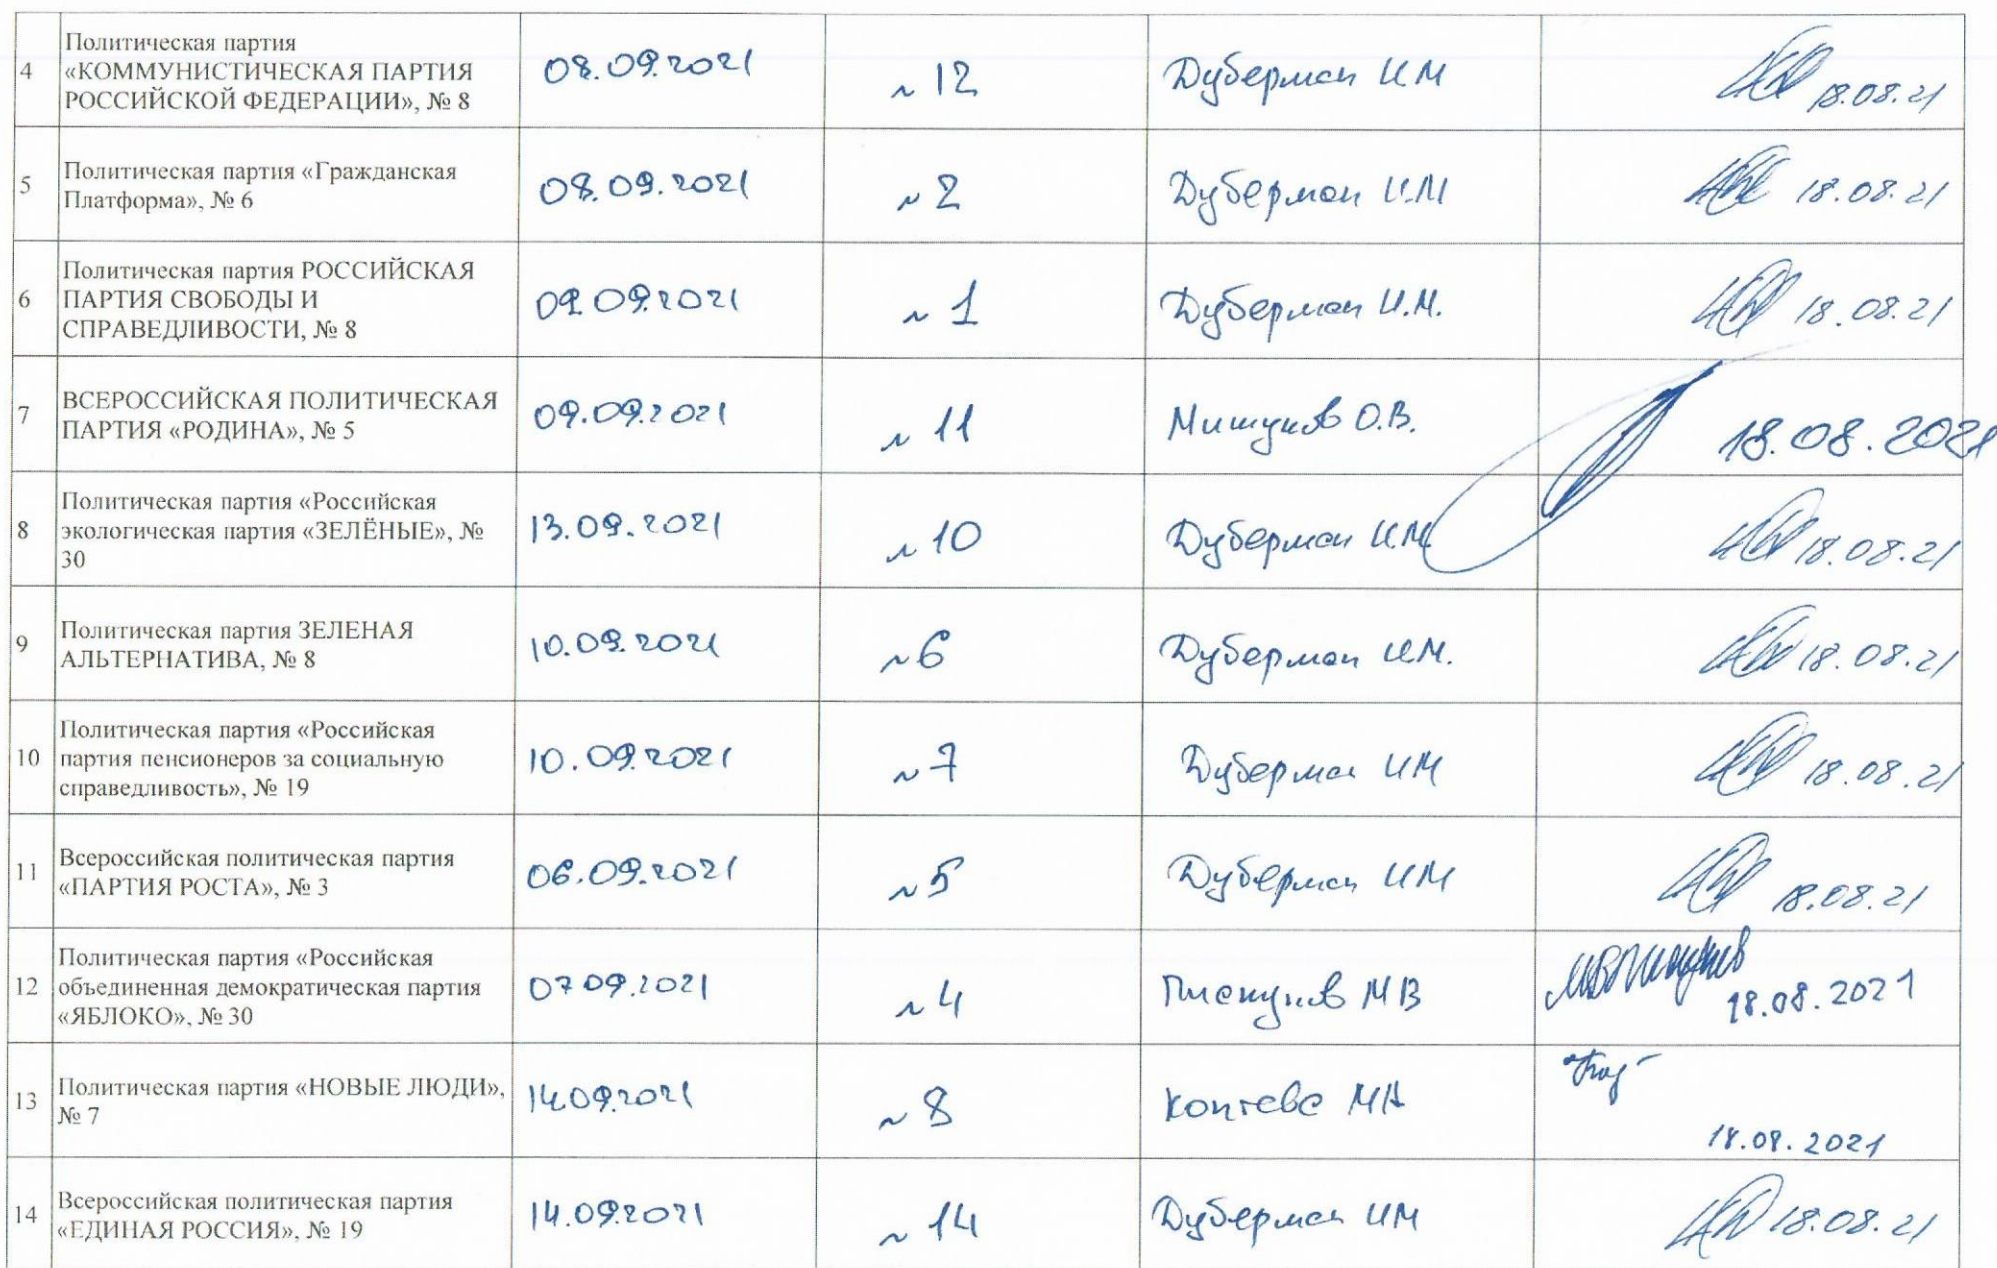 4 Политическая партия
«КОММУНИСТИЧЕСКАЯ ПАРТИЯ
РОССИЙСКОЙ ФЕДЕРАЦИИ», № 8
08.09.2021 ~ 12 Дуберман И М 18.08.21
5 Политическая партия «Гражданская
Платформа», № 6
08.09.2021 ~ 2 Дуберман И.М 18.08.21
6 Политическая партия РОССИЙСКАЯ
ПАРТИЯ СВОБОДЫ И
СПРАВЕДЛИВОСТИ, № 8
09.09.2021 ~ 1 Дуберман И.М. 18.08.21
7 ВСЕРОССИЙСКАЯ ПОЛИТИЧЕСКАЯ
ПАРТИЯ «РОДИНА», № 5
09.09.2021 ~ 11 О.В. 18.08.2021
8 Политическая партия «Российская
экологическая партия «ЗЕЛЁНЫЕ», №
30
13.09.2021 ~ 10 Дуберман И.М. 18.08.21
9 Политическая партия ЗЕЛЕНАЯ
АЛЬТЕРНАТИВА, № 8
10.09.2021 ~ 6 Дуберман И.М. 18.08.21
10 Политическая партия «Российская
партия пенсионеров за социальную
справедливость», № 19
10.09.2021 ~ 7 Дуберман И М 18.08.21
11 Всероссийская политическая партия
«ПАРТИЯ РОСТА», № 3
06.09.2021 ~ 5 Дуберман И М 18.08.21
12 Политическая партия «Российская
объединенная демократическая партия
«ЯБЛОКО», № 30
07 09.2021 ~ 4 Пискунов М В 18.08.2021
13 Политическая партия «НОВЫЕ ЛЮДИ»,
№ 7
14.09.2021 ~ 8 Коптева М А 18.08.2021
14 Всероссийская политическая партия
«ЕДИНАЯ РОССИЯ», № 19
14.09.2021 ~ 14 Дуберман И М 18.08.21